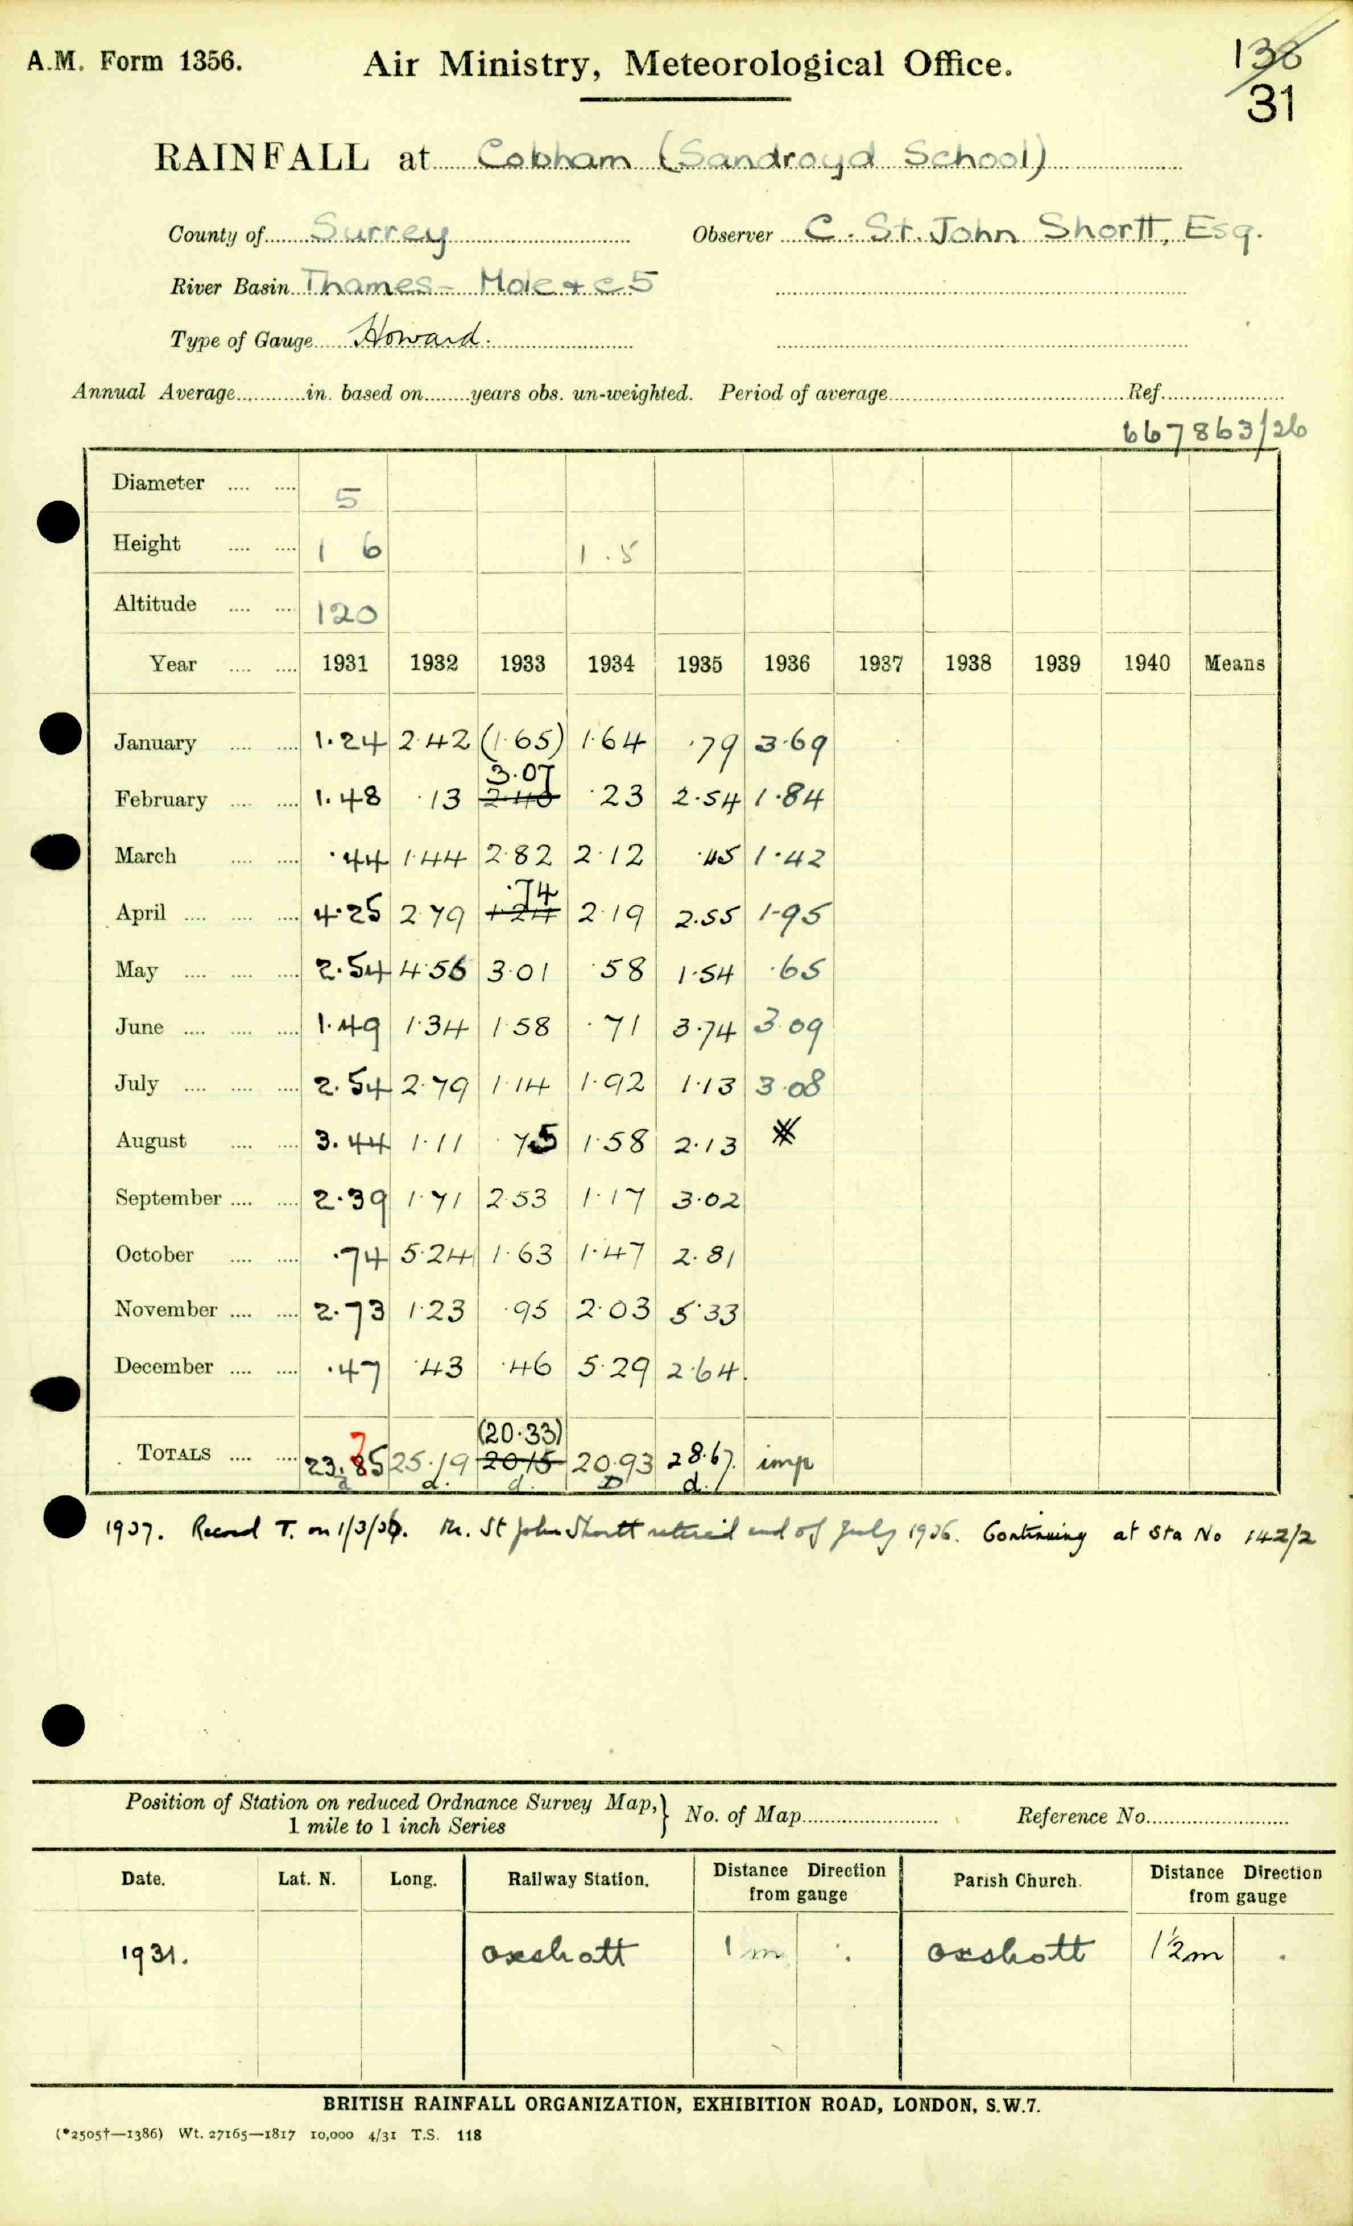 A.M. Form 1356.
Air Ministry, Meteorological Office.
138
31
RAINFALL at Cobham (Sandroyd School)
County of Surrey Observer C. St. John Shortt, Esq.
River Basin Thames - Mole & c 5
Type of Gauge Howard.
Annual Average in. based on years obs. un-weighted. Period of average Ref.
667863/26
Diameter 5
Height 1 6 1.5
Altitude 120
Year 1931 1932 1933 1934 1935 1936 1937 1938 1939 1940 Means
January 1.24 2.42 (1.65) 1.64 .79 3.69
February 1.48 .13 3.07 .23 2.54 1.84
March .44 1.44 2.82 2.12 .45 1.42
April 4.25 2.79 .74 1.24 2.19 2.55 1.95
May 2.54 4.56 3.01 .58 1.54 .65
June 1.49 1.34 1.58 .71 3.74 3.09
July 2.54 2.79 1.14 1.92 1.13 3.08
August 3.44 1.11 .75 1.58 2.13
September 2.39 1.71 2.53 1.17 3.02
October .74 5.24 1.63 1.47 2.81
November 2.73 1.23 .95 2.03 5.33
December .47 .43 .46 5.29 2.64.
(20.33)
TOTALS 23.85 7 25.19 20.15 20.93 28.67. imp
d d. d. D d.
1937. Record T. on 1/3/36. Mr. St John Shortt retired end of July 1936. Continuing at Sta No 142/2
Position of Station on reduced Ordnance Survey Map, 1 mile to 1 inch Series } No. of Map Reference No.
Date. Lat. N. Long. Railway Station. Distance Direction from gauge Parish Church. Distance Direction from gauge
1931. Oxshott 1 m Oxshott 1½m
BRITISH RAINFALL ORGANIZATION, EXHIBITION ROAD, LONDON, S.W.7.
(*2505†—1386) Wt. 27165—1817 10,000 4/31 T.S. 118